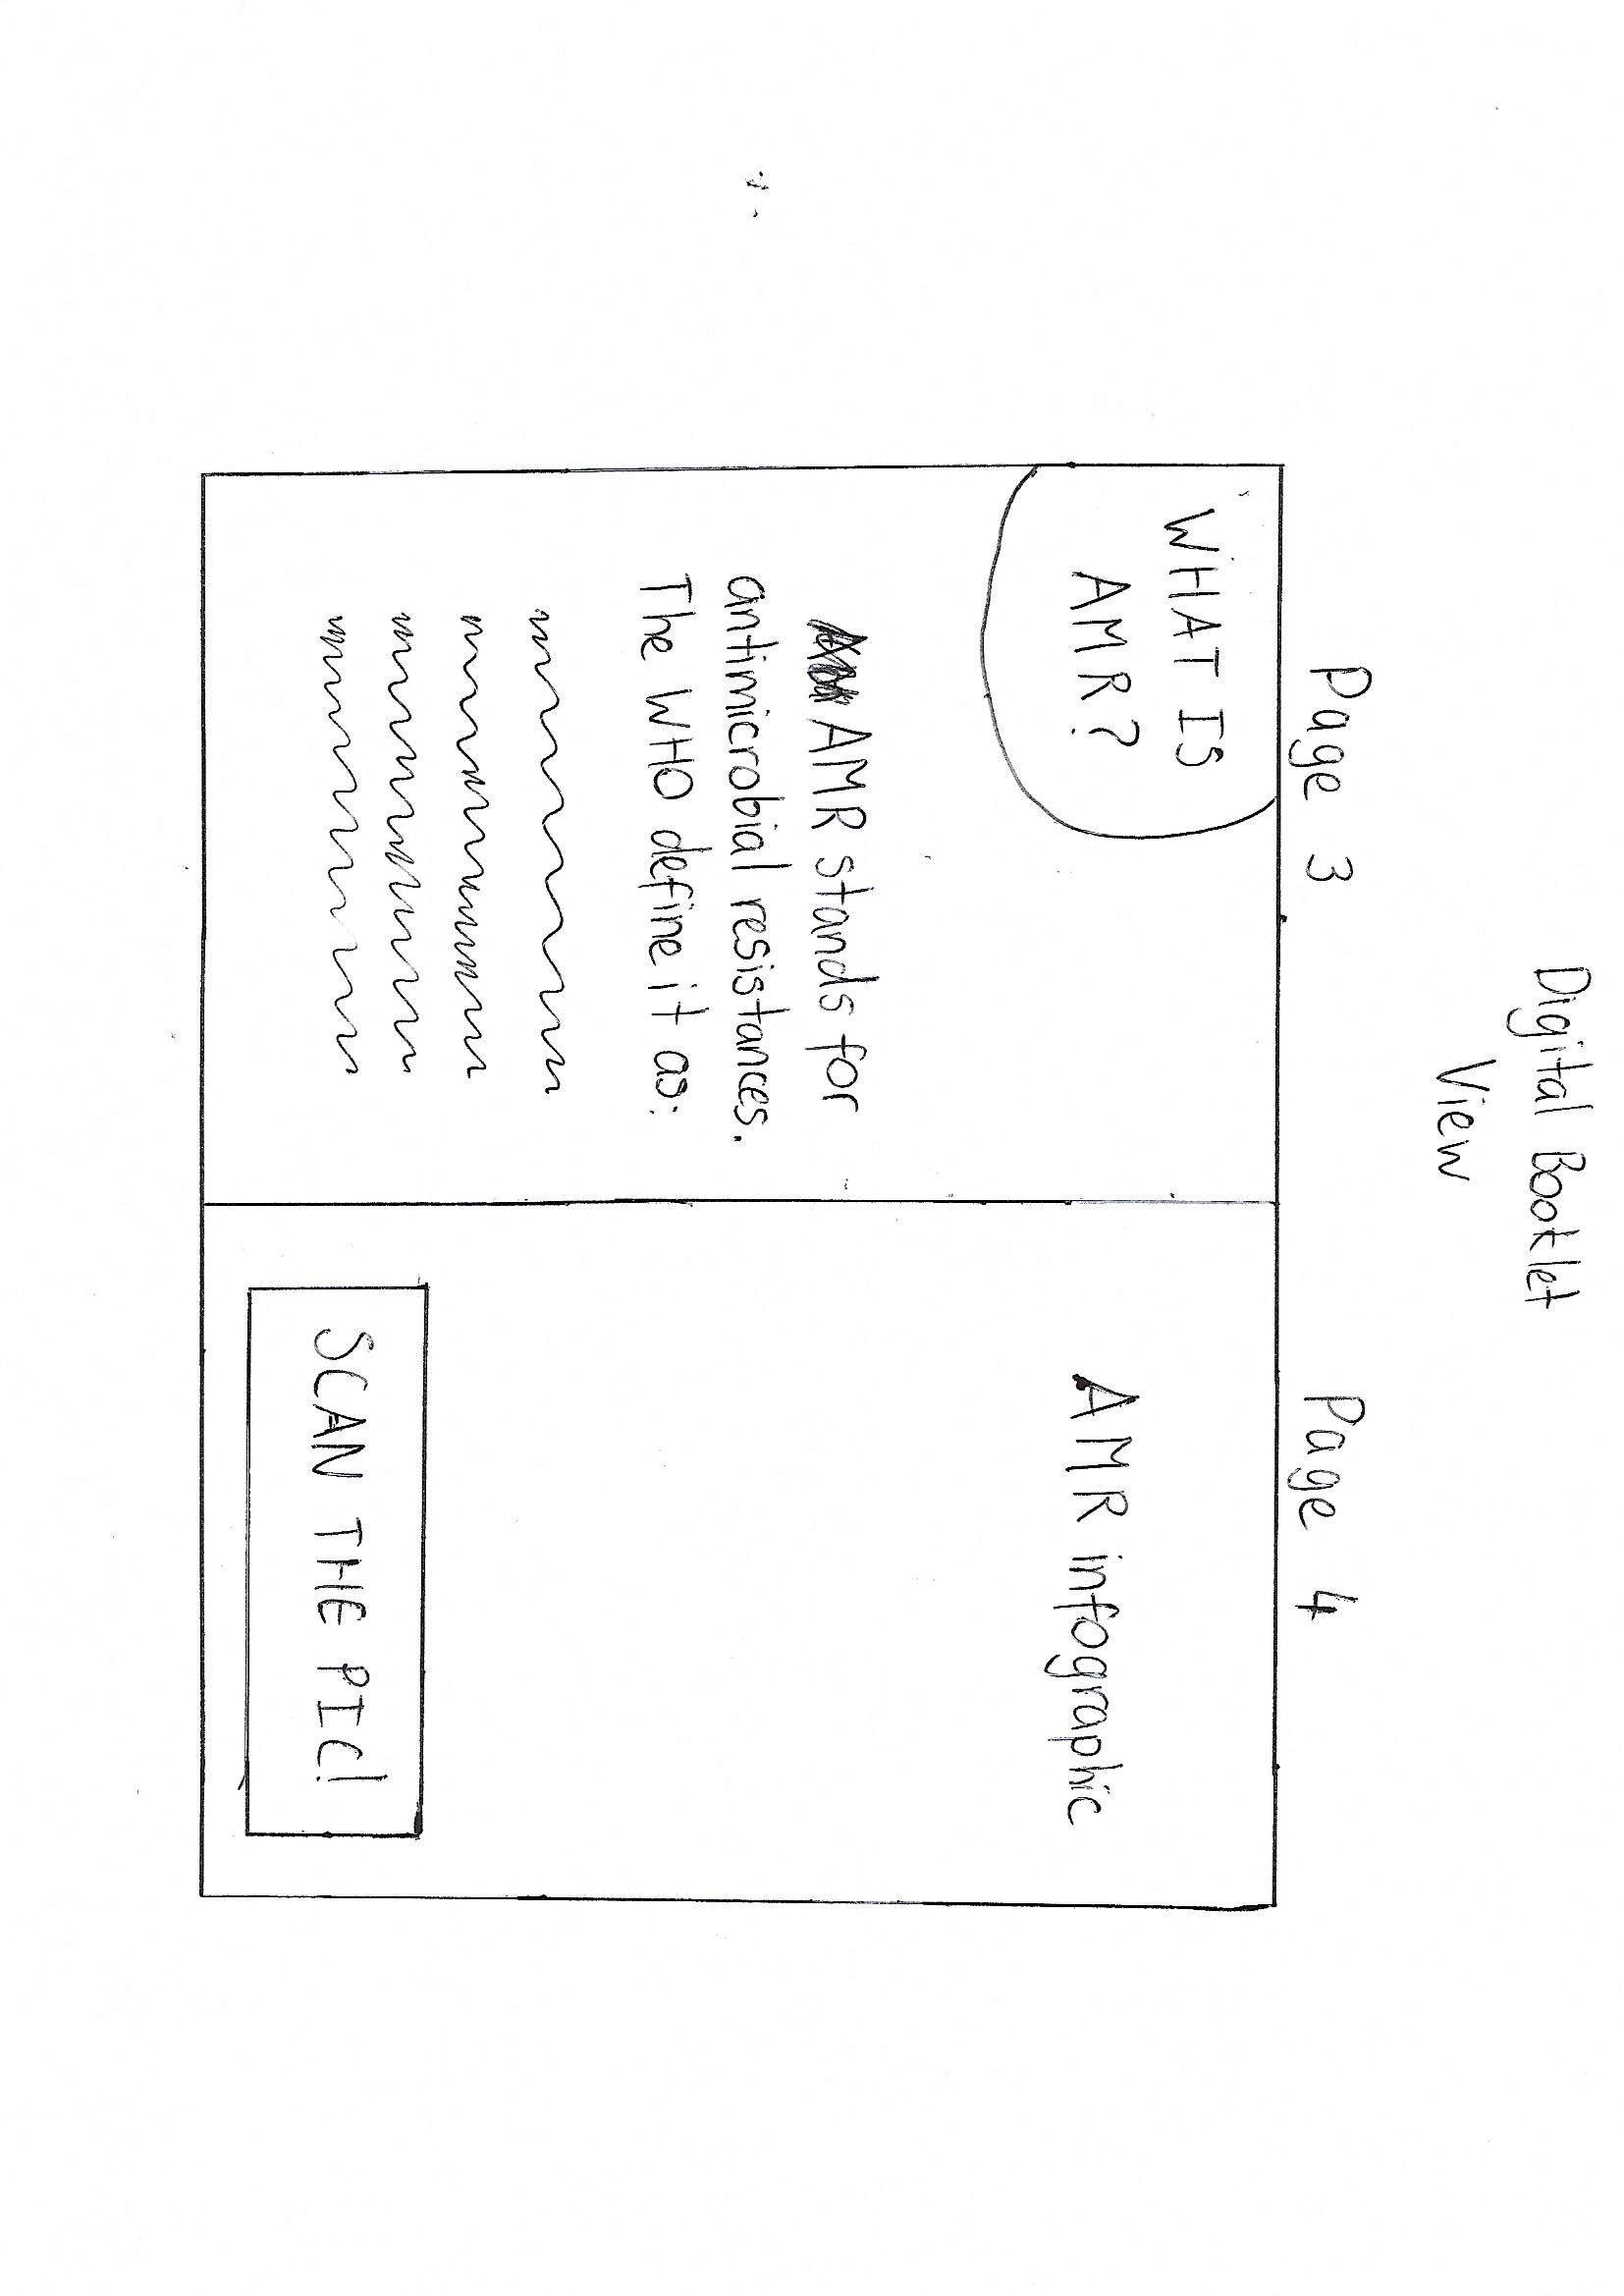 Digital Booklet
View
Page 3
WHAT IS
AMR?
AMR stands for
antimicrobial resistances.
The WHO define it as:
Page 4
AMR infographic
SCAN THE PIC!